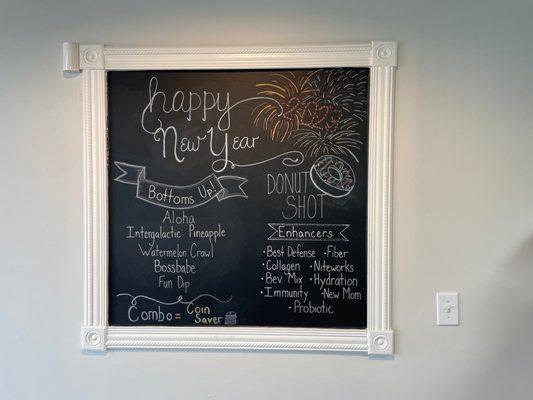 happy
New Year
2023
Bottoms Up:
Aloha
Intergalactic Pineapple
Watermelon Crawl
Bossbabe
Fun Dip
Combo = Coin Saver
DONUT
SHOT
Enhancers
• Best Defense • Fiber
• Collagen • Niteworks
• Bev. Mix • Hydration
• Immunity • New Mom
• Probiotic